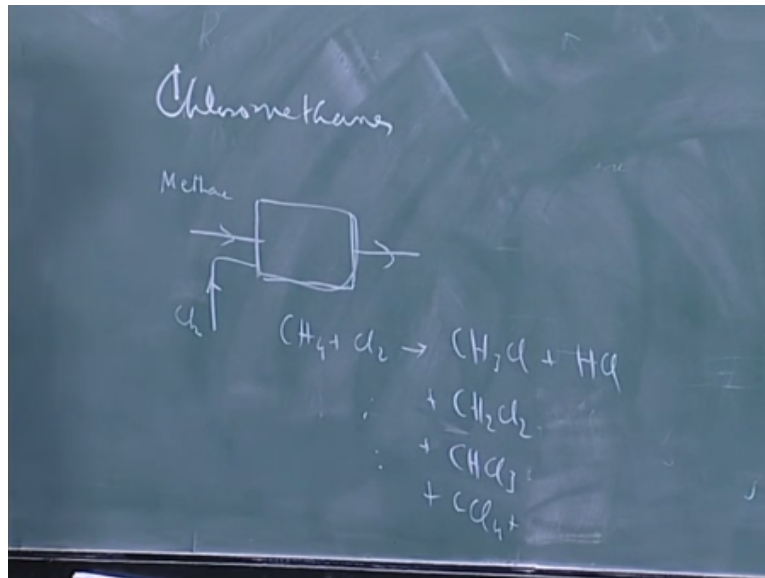 Chloromethanes
Methae
Cl₂
CH₄ + Cl₂ → CH₃Cl + HCl
: + CH₂Cl₂
: + CHCl₃
+ CCl₄ +